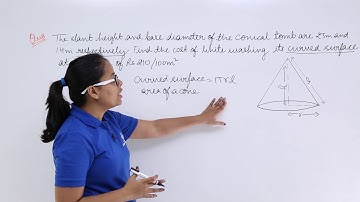 Ques The slant height and base diameter of the conical tomb are 25m and
14m respectively. Find the cost of white washing its curved surface
at of Rs 210/100m²
Curved surface = πrl
area of a cone
r